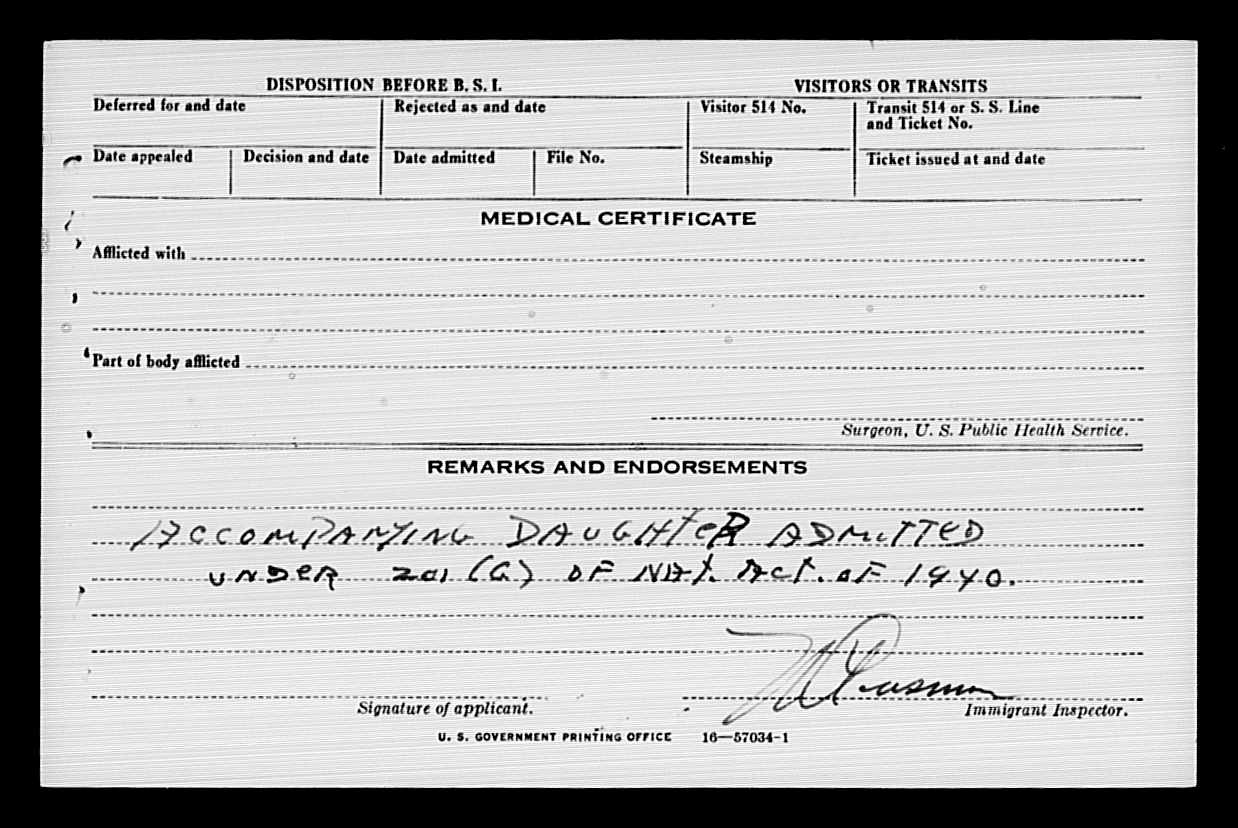 DISPOSITION BEFORE B. S. I.
VISITORS OR TRANSITS
Deferred for and date
Rejected as and date
Visitor 514 No.
Transit 514 or S. S. Line
and Ticket No.
Date appealed
Decision and date
Date admitted
File No.
Steamship
Ticket issued at and date
MEDICAL CERTIFICATE
Afflicted with
Part of body afflicted
Surgeon, U. S. Public Health Service.
REMARKS AND ENDORSEMENTS
ACCOMPANYING DAUGHTER ADMITTED
UNDER 201 (G) OF NAT. ACT. OF 1940.
Signature of applicant.
Immigrant Inspector.
U. S. GOVERNMENT PRINTING OFFICE 16—57034-1